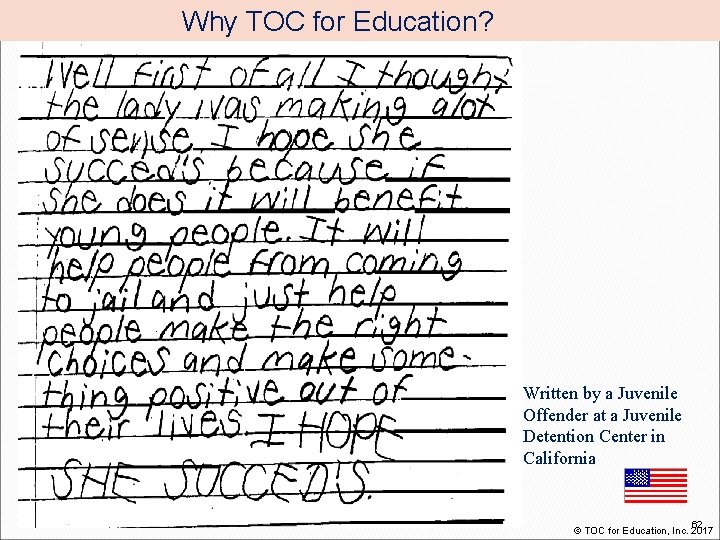 Why TOC for Education?
Well first of all I thought
the lady was making alot
of sense. I hope she
succed's because if
she does it will benefit
young people. It will
help people from coming
to jail and just help
people make the right
choices and make some-
thing positive out of
their lives. I HOPE
SHE SUCCED'S.
Written by a Juvenile
Offender at a Juvenile
Detention Center in
California
62
© TOC for Education, Inc. 2017